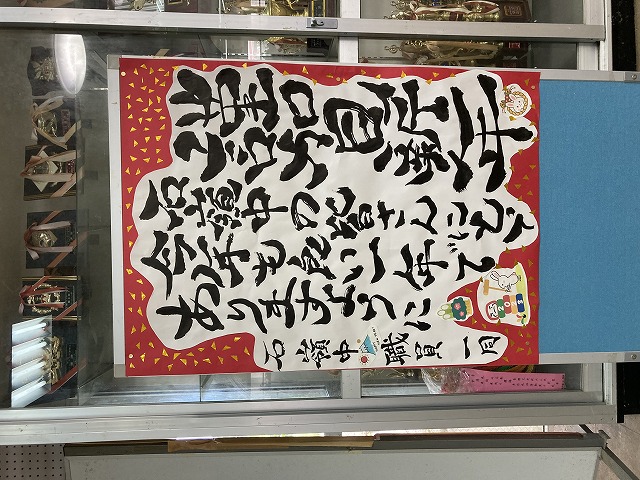 謹賀新年
石嶺中の皆さんにとって
今年も良い一年で
ありますように
石嶺中 職員一同